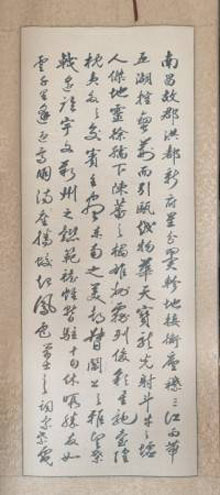 南昌故郡洪都新府星分翼軫地接衡廬襟三江而帶
五湖控蠻荊而引甌越物華天寶龍光射斗牛之墟
人傑地靈徐孺下陳蕃之榻雄州霧列俊彩星馳臺隍
枕夷夏之交賓主盡東南之美都督閻公之雅望棨
戟遙臨宇文新州之懿範襜帷暫駐十旬休暇勝友如
雲千里逢迎高朋滿座騰蛟起鳳孟學士之詞宗紫電